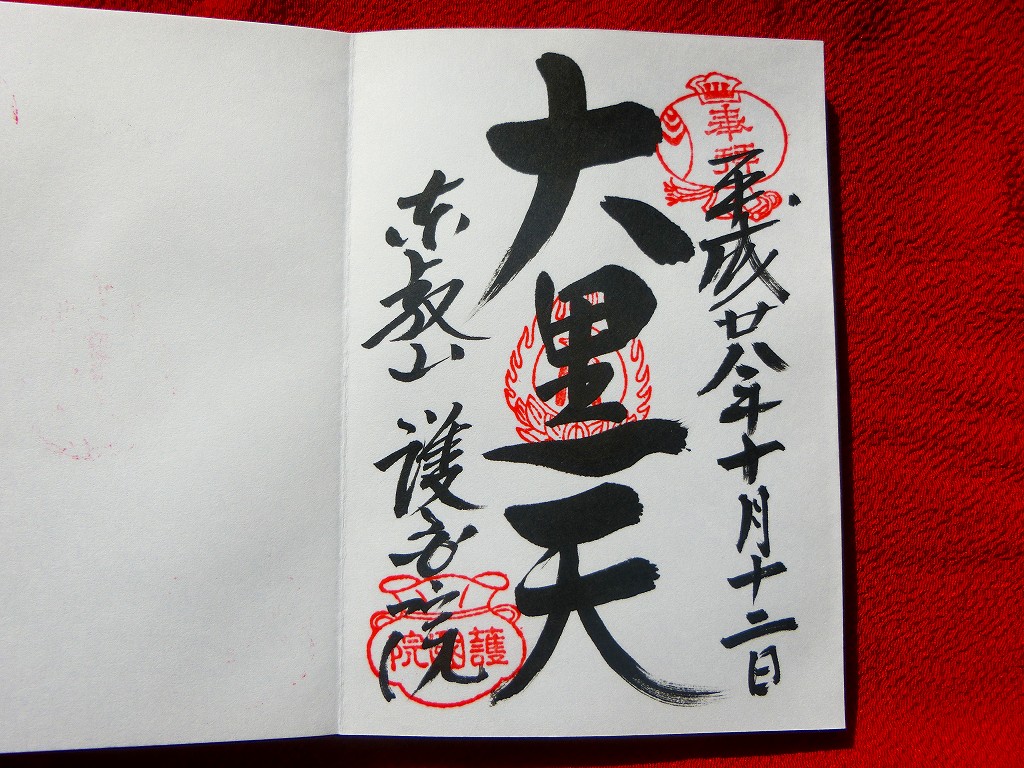 奉拝
平成廿八年十月十二日
大黒天
東叡山 護国院
護國院